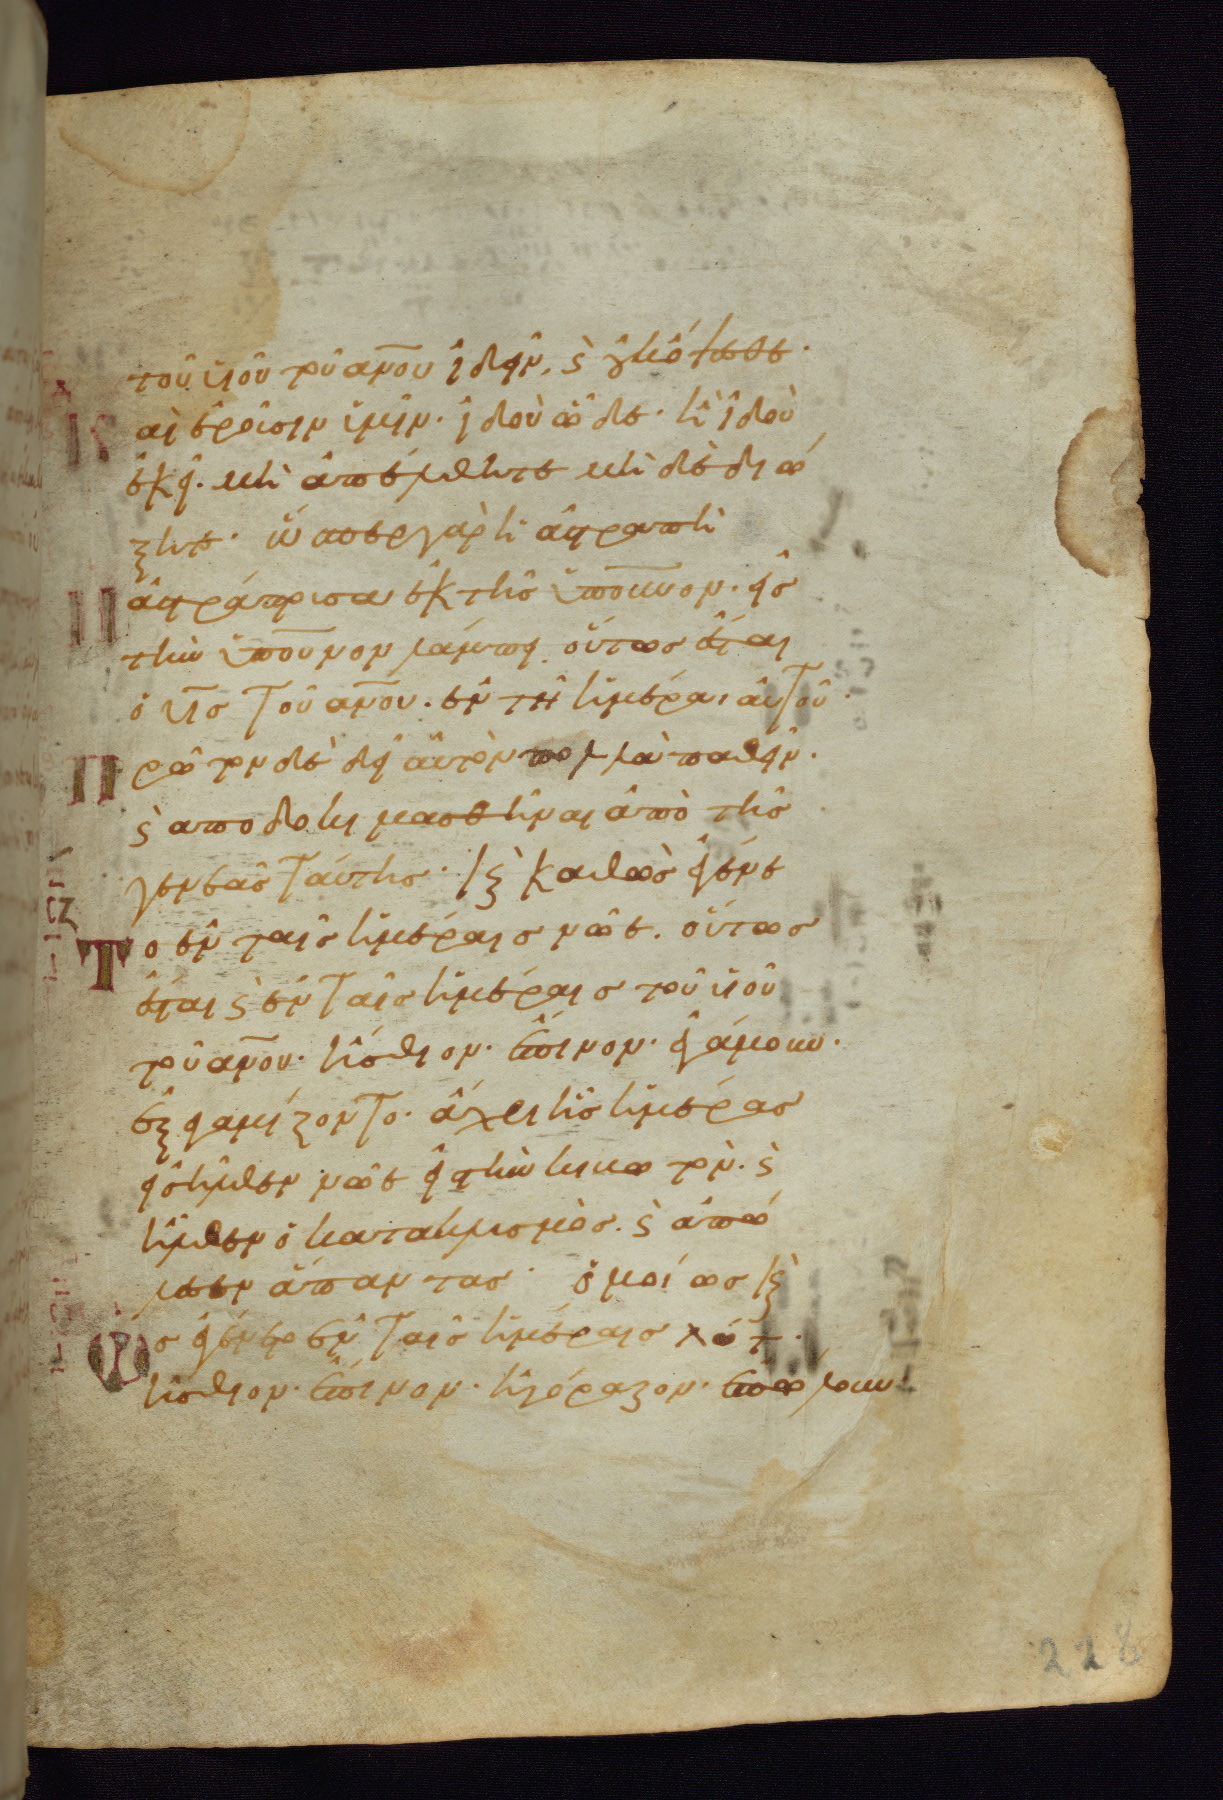 τοῦ υἱοῦ τοῦ ἀν̅ου ἰδεῖν, ϛ̀ οὐκ ὄψεσθε·
καὶ ἐροῦσιν ὑμῖν· ἰδοὺ ὧδε· ἢ ἰδοὺ
ἐκεῖ· μὴ ἀπέλθητε μὴ δὲ διώ
ξητε· ὥσπερ γὰρ ἡ ἀστραπὴ
ἀστράπτουσα ἐκ τῆς ὑπ' οὐ̅νον· εἰς
τὴν ὑπ' οὐ̅νον λάμπει. οὕτως ἔσται
ὁ υἱ̅ς τοῦ ἀν̅ου· ἐν τῇ ἡμέραι αὐτοῦ·
πρῶτον δὲ δεῖ αὐτὸν πολλὰ παθεῖν·
ϛ̀ ἀποδοκιμασθῆναι ἀπὸ τῆς
γενεᾶς ταύτης· ϗ̀ καθὼς ἐγένε
το ἐν ταῖς ἡμέραις νῶε. οὕτως
ἔσται ϛ̀ ἐν ταῖς ἡμέραις τοῦ υἱοῦ
τοῦ ἀν̅ου· ἤσθιον· ἔπινον· ἐγάμουν·
ἐξεγαμίζοντο· ἄχρι ἧς ἡμέρας
εἰσῆλθεν νῶε εἰς τὴν κιβωτόν· ϛ̀
ἦλθεν ὁ κατακλυσμὸς· ϛ̀ ἀπώ
λεσεν ἅπαντας· ὁμοίως ϗ̀
ὡς ἐγένετο ἐν ταῖς ἡμέραις λώτ·
ἤσθιον· ἔπινον· ἠγόραζον· ἐπώλουν
228